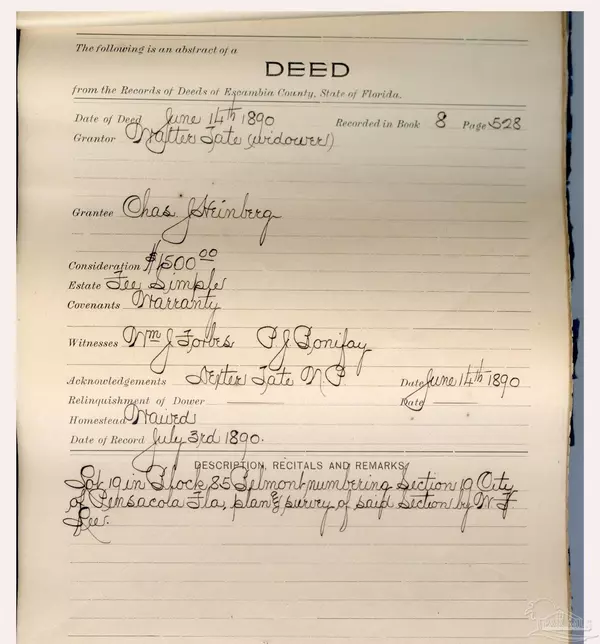 The following is an abstract of a
DEED
from the Records of Deeds of Escambia County, State of Florida.
Date of Deed June 14th 1890 Recorded in Book 8 Page 528
Grantor Walter Tate (widower)
Grantee Chas J Heinberg
Consideration $1,500 00
Estate Fee Simple
Covenants Warranty
Witnesses Wm J Forbes P J Bonifay
Acknowledgements Dexter Tate N P Date June 14th 1890
Relinquishment of Dower Date
Homestead Waived
Date of Record July 3rd 1890.
DESCRIPTION, RECITALS AND REMARKS
Lot 19 in Block 85 Belmont numbering Section 19 City
of Pensacola Fla, plan & survey of said Section by W F
Lee.